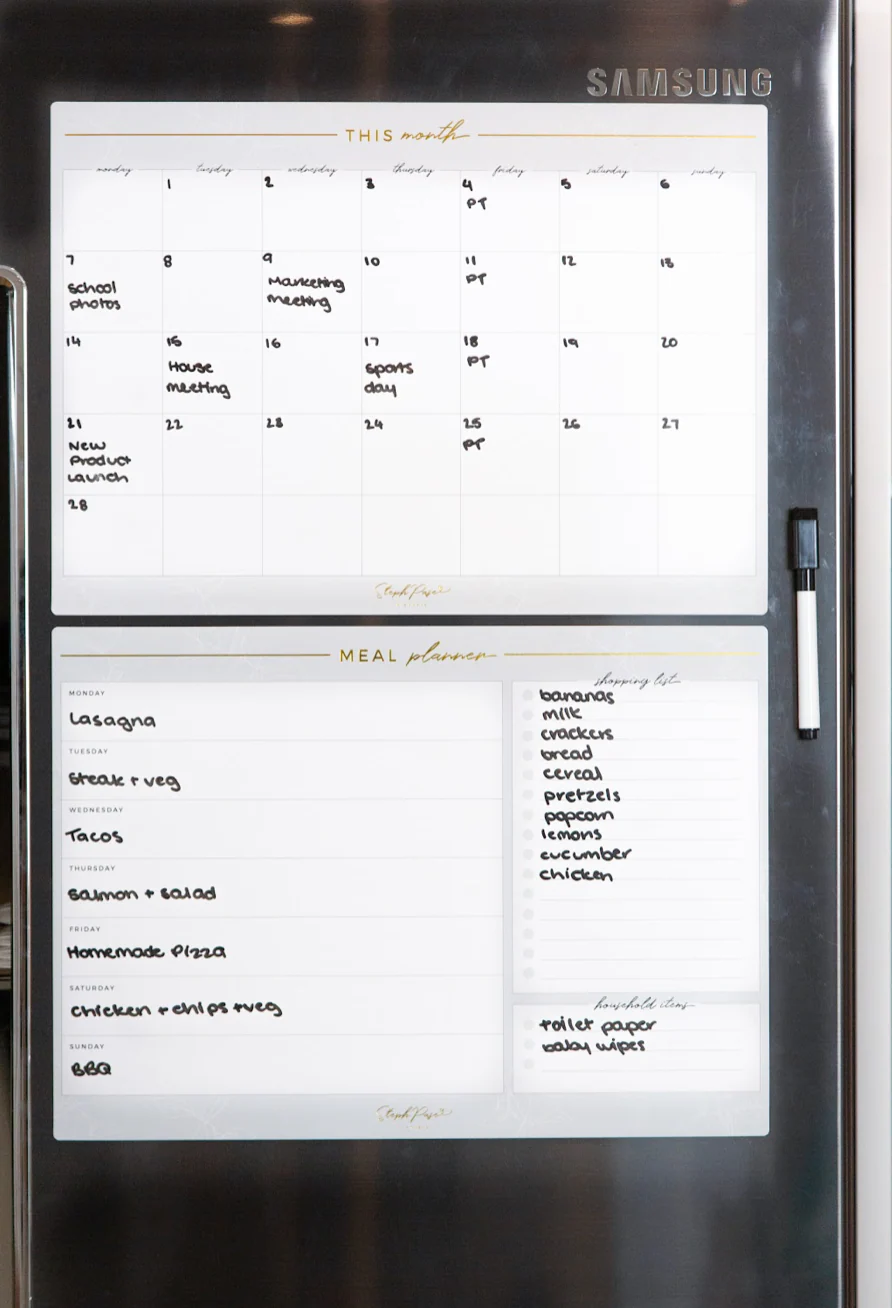 SAMSUNG
THIS month
monday tuesday wednesday thursday friday saturday sunday
1 2 3 4 5 6
PT
7 8 9 10 11 12 13
School
photos
Marketing
meeting
PT
14 15 16 17 18 19 20
House
meeting
Sports
day
PT
21 22 23 24 25 26 27
New
Product
Launch
PT
28
Steph Pase
MEAL planner
MONDAY
Lasagna
TUESDAY
Steak + veg
WEDNESDAY
Tacos
THURSDAY
Salmon + salad
FRIDAY
Homemade Pizza
SATURDAY
Chicken + chips + veg
SUNDAY
BBQ
shopping list
bananas
milk
crackers
bread
cereal
pretzels
popcorn
lemons
cucumber
chicken
household items
toilet paper
baby wipes
Steph Pase